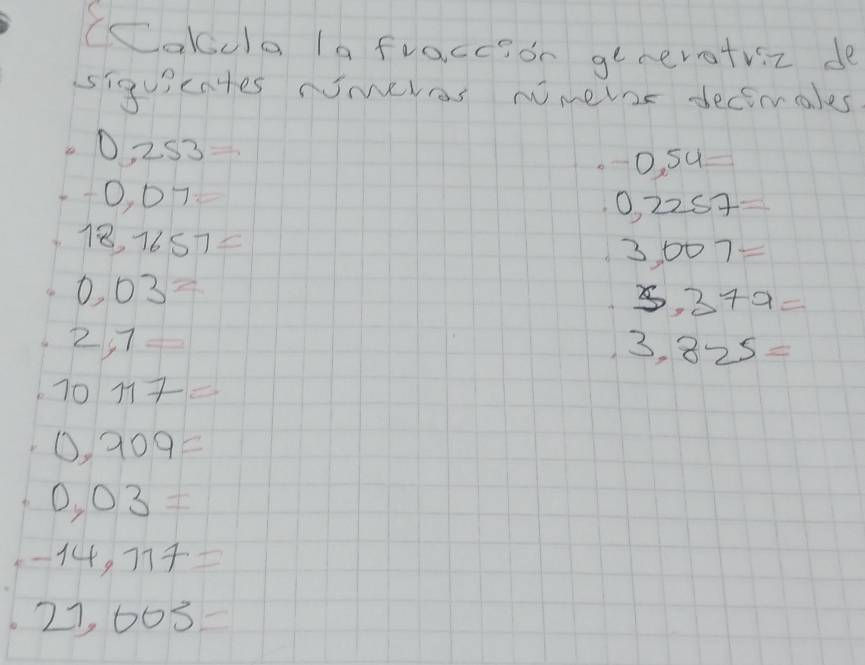 Calcula la fracción generatriz de
siguientes números números decimales
0,253=
-0,01=
18,1651=
0,03=
2,1=
10 117=
0,909=
0,03=
-14,117=
21,005=
-0,54=
0,2257=
3,001=
5,379=
3,825=